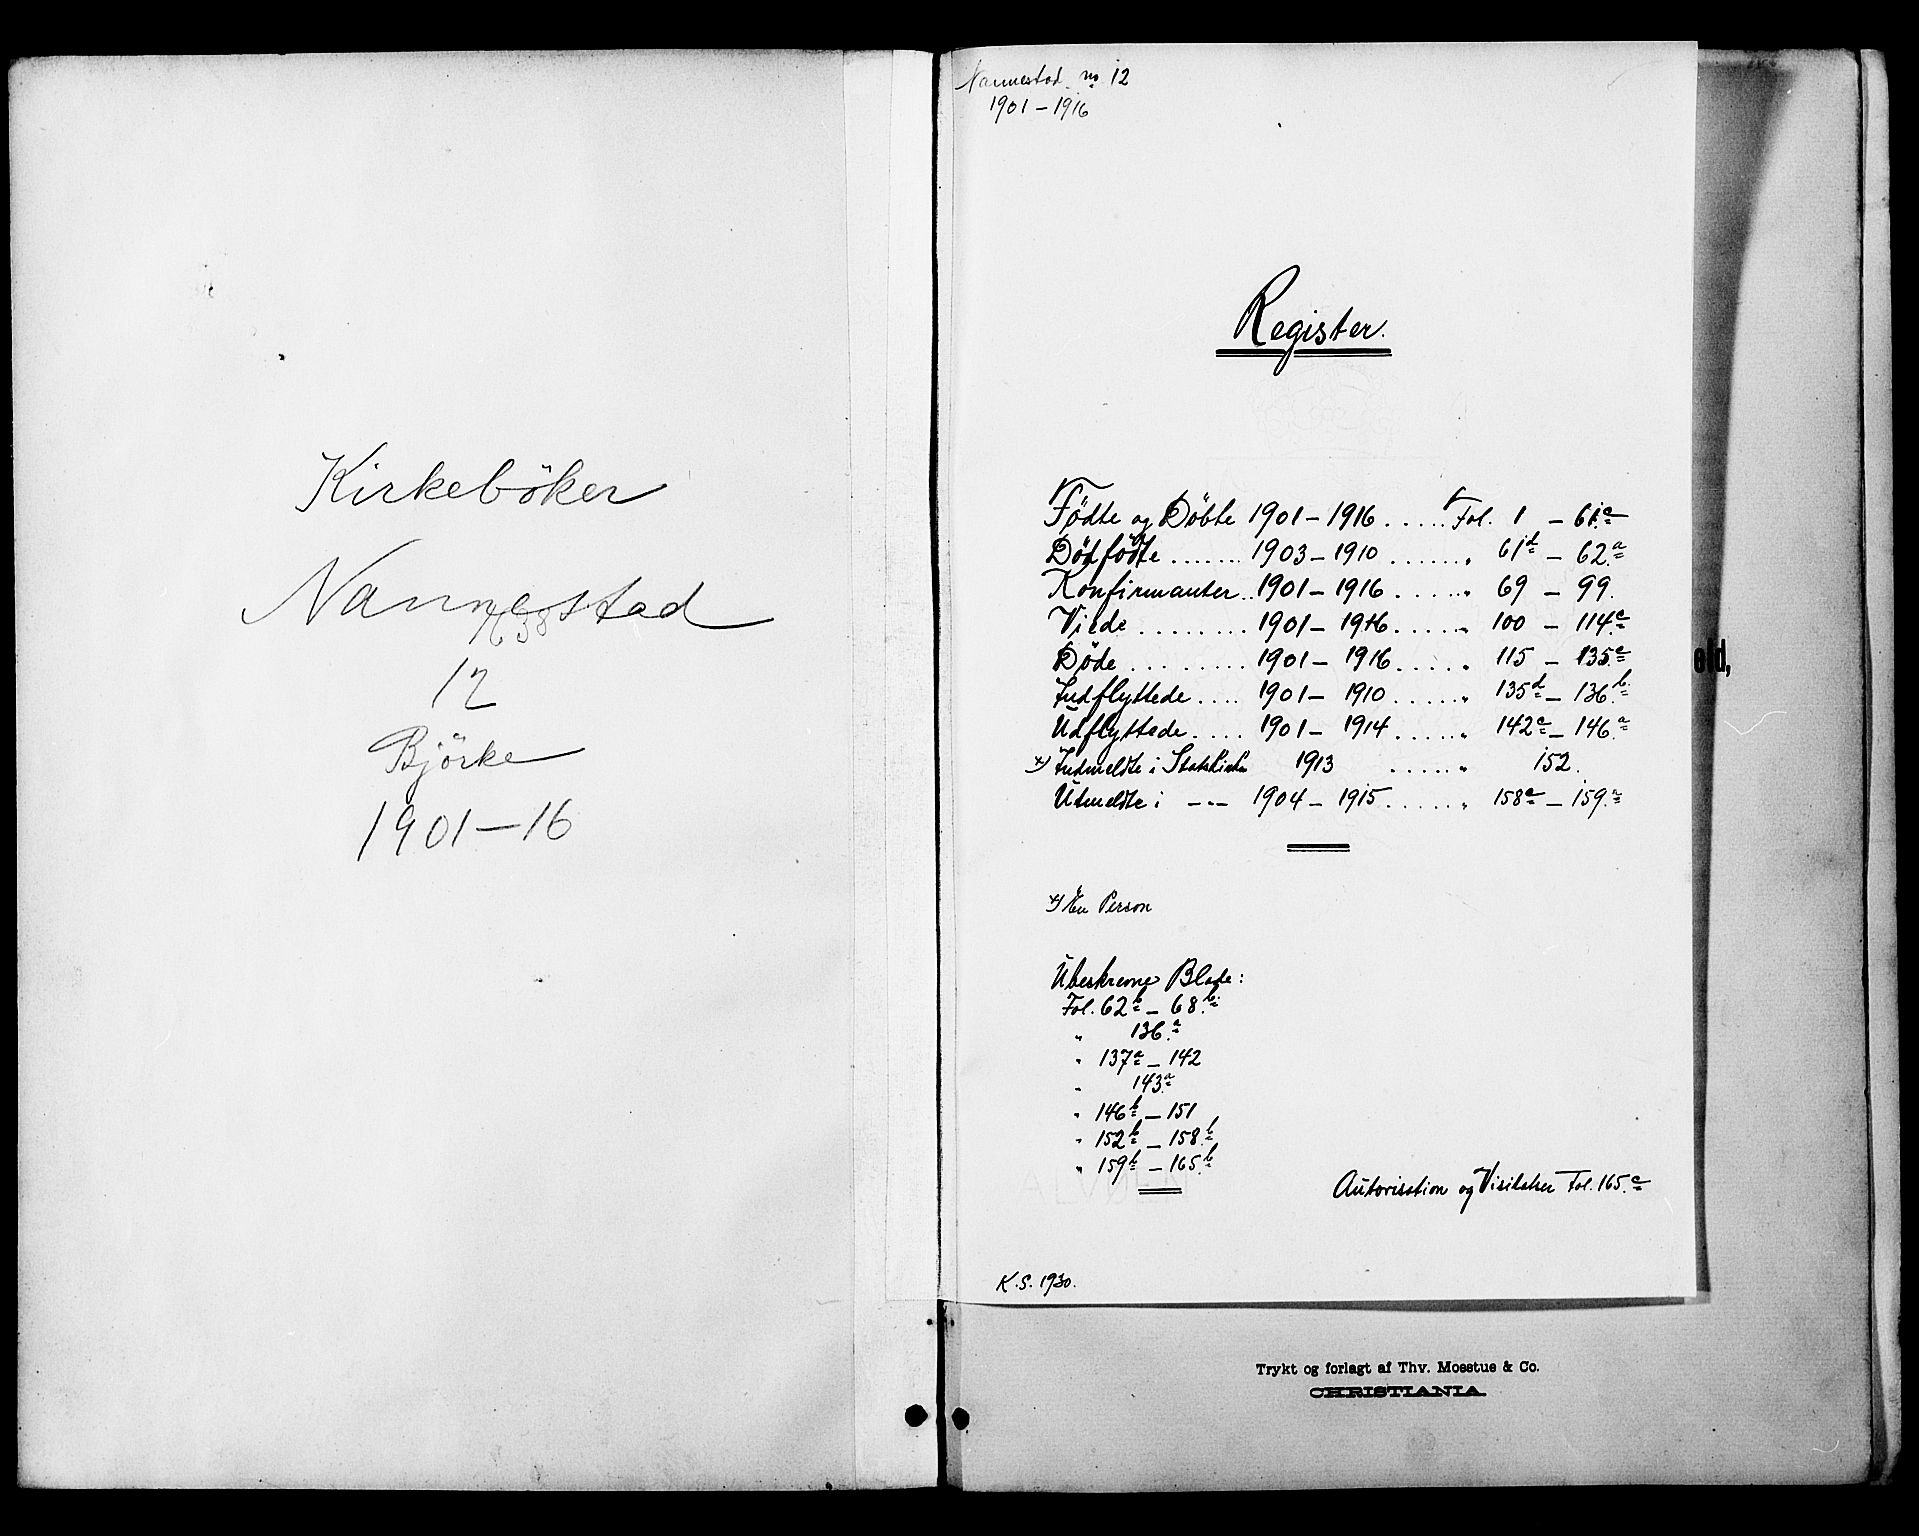 Kirkeböker
Nannestad
1638
12
Björke
1901-16
Nannestad no 12
1901-1916
Register.
Födte og Döbte 1901-1916 ..... Fol. 1 - 61.c
Dödfödte ....... 1903-1910 ...... " 61d - 62.a
Konfirmanter.. 1901-1916 ...... " 69 - 99.
Viede ......... 1901-1916 ..... " 100 - 114.c
Döde ......... 1901-1916 ..... " 115 - 135.c
Indflyttede .... 1901-1910 ...... " 135d - 136.b
Udflyttede .... 1901-1914 ...... " 142c - 146.a
x) Indmeldte i Statskirken 1913 ..... " 152.
Utmeldte i -"- 1904-1915 ...... " 158a - 159.a
x) Én Person
Ubeskrevne Blade:
Fol. 62b - 68.b
" 136.a
" 137a - 142
" 143.a
" 146b - 151
" 152b - 158.b
" 159b - 165.b
Autorisation og Visitatser Fol. 165.c
K.S. 1930.
eld,
Trykt og forlagt af Thv. Mosstue & Co.
CHRISTIANIA.